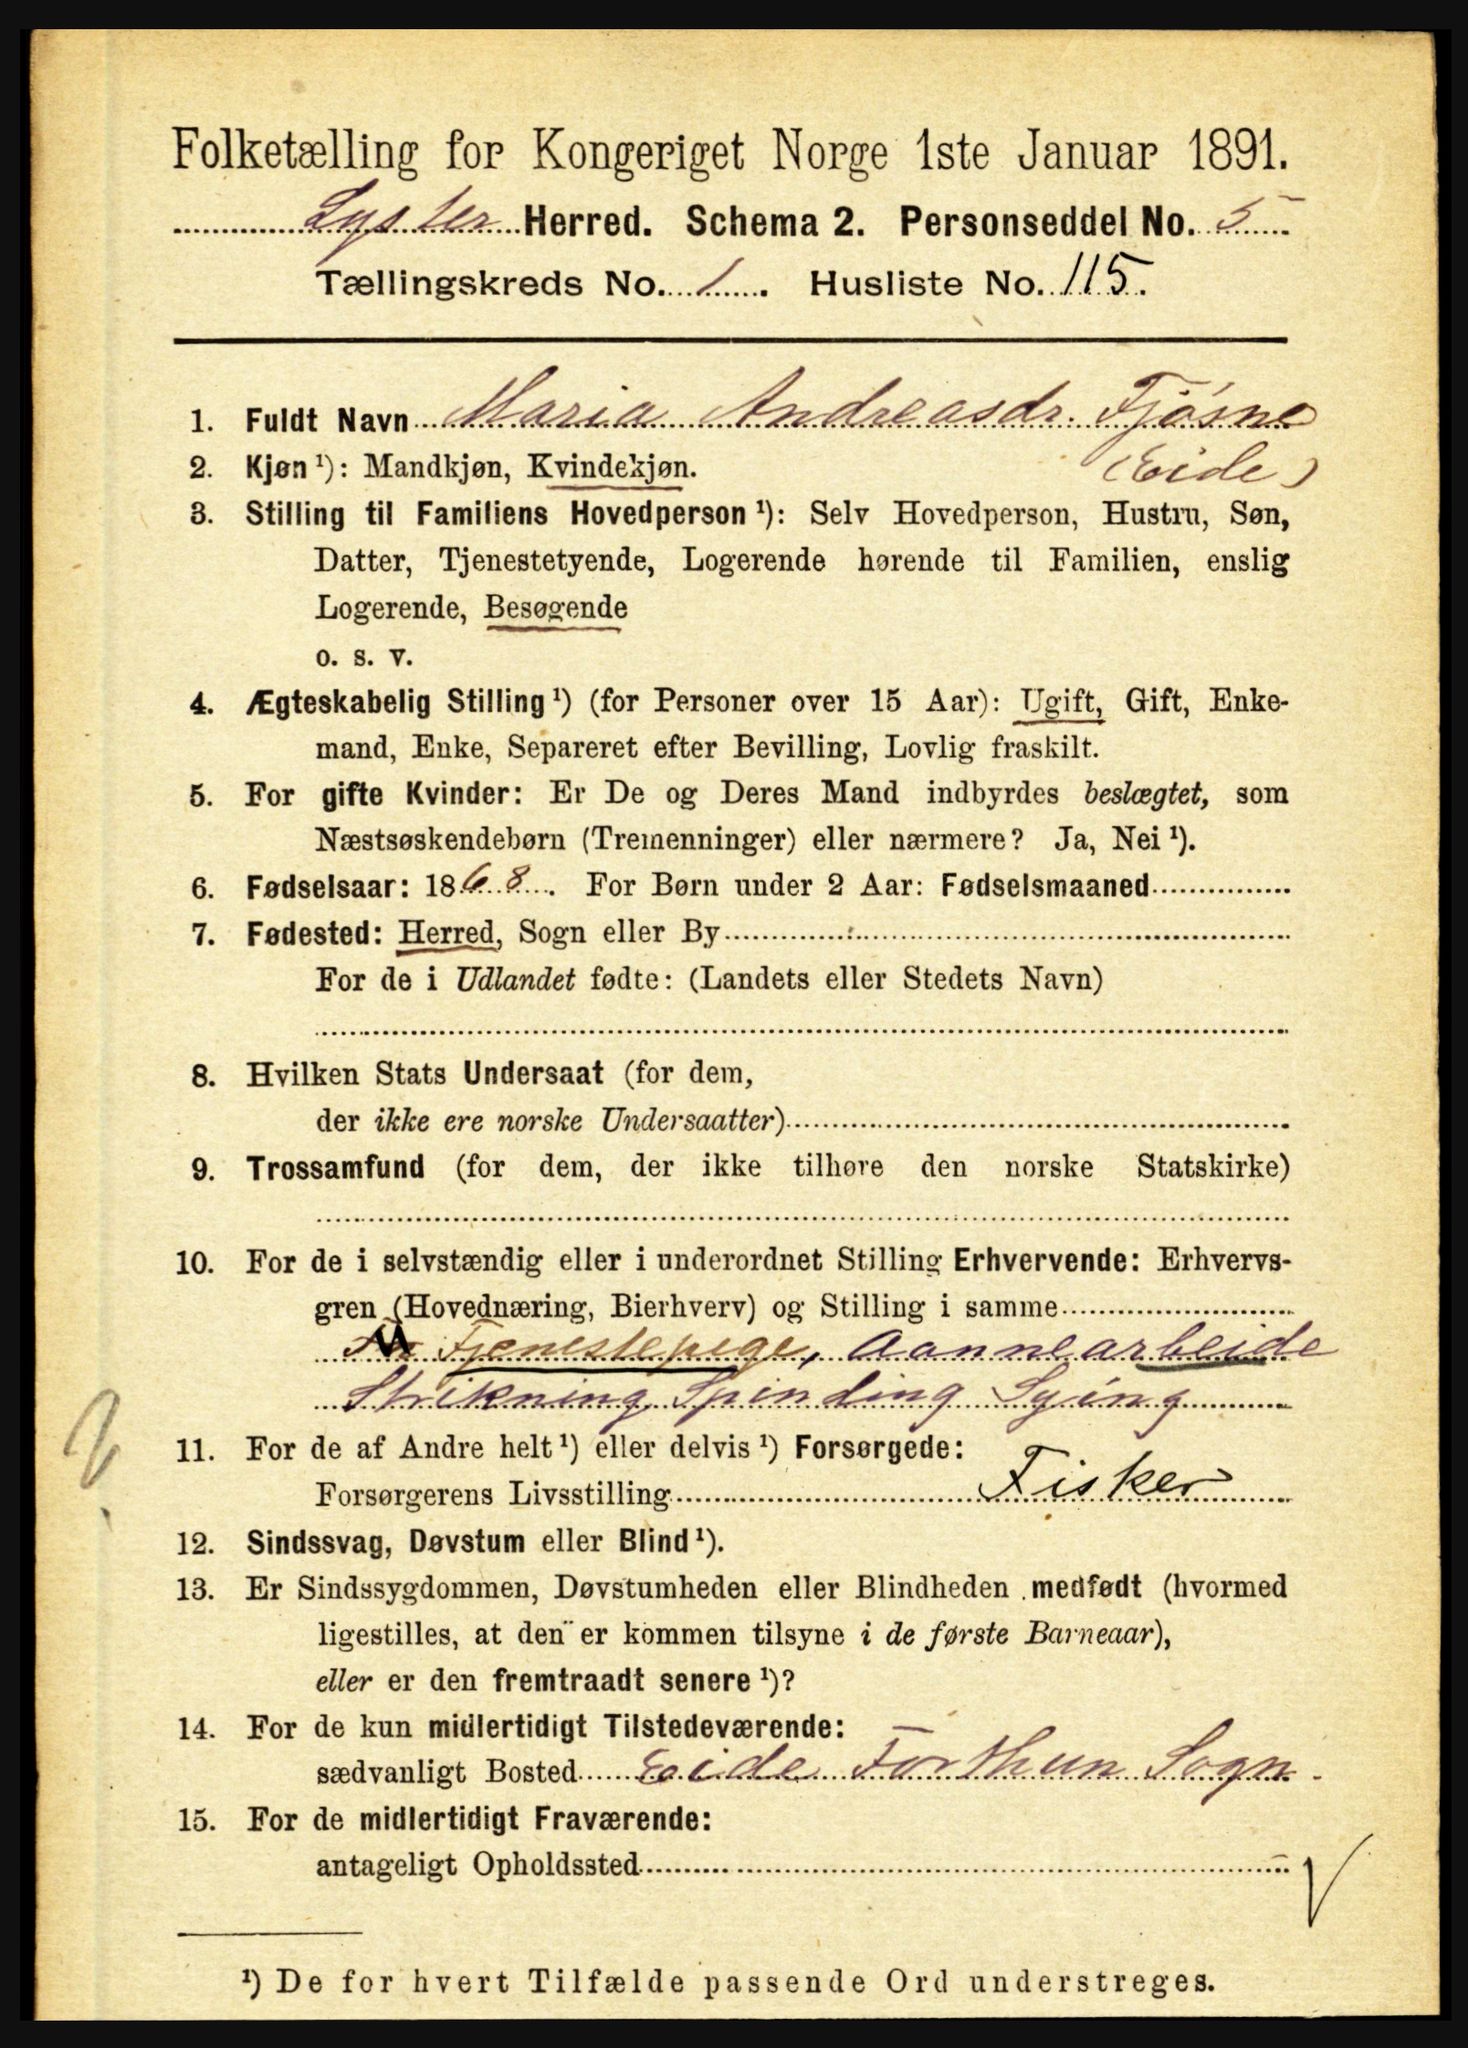 Folketælling for Kongeriget Norge 1ste Januar 1891.
Lyster Herred. Schema 2. Personseddel No. 5
Tællingskreds No. 1. Husliste No. 115.
1. Fuldt Navn Maria Andreasdr. Fjøsne
(Eide)
2. Kjøn ¹): Mandkjøn, Kvindekjøn.
3. Stilling til Familiens Hovedperson ¹): Selv Hovedperson, Hustru, Søn,
Datter, Tjenestetyende, Logerende hørende til Familien, enslig
Logerende, Besøgende
o. s. v.
4. Ægteskabelig Stilling ¹) (for Personer over 15 Aar): Ugift, Gift, Enke-
mand, Enke, Separeret efter Bevilling, Lovlig fraskilt.
5. For gifte Kvinder: Er De og Deres Mand indbyrdes beslægtet, som
Næstsøskendebørn (Tremenninger) eller nærmere? Ja, Nei ¹).
6. Fødselsaar: 1868. For Børn under 2 Aar: Fødselsmaaned
7. Fødested: Herred, Sogn eller By
For de i Udlandet fødte: (Landets eller Stedets Navn)
8. Hvilken Stats Undersaat (for dem,
der ikke ere norske Undersaatter)
9. Trossamfund (for dem, der ikke tilhøre den norske Statskirke)
10. For de i selvstændig eller i underordnet Stilling Erhvervende: Erhvervs-
gren (Hovednæring, Bierhverv) og Stilling i samme
Tjenestepige, Aannearbeide
Strikning Spinding Sying
11. For de af Andre helt ¹) eller delvis ¹) Forsørgede:
Forsørgerens Livsstilling Fisker
12. Sindssvag, Døvstum eller Blind ¹).
13. Er Sindssygdommen, Døvstumheden eller Blindheden medfødt (hvormed
ligestilles, at den er kommen tilsyne i de første Barneaar),
eller er den fremtraadt senere ¹)?
14. For de kun midlertidigt Tilstedeværende:
sædvanligt Bosted Eide Forthun Sogn.
15. For de midlertidigt Fraværende:
antageligt Opholdssted
¹) De for hvert Tilfælde passende Ord understreges.